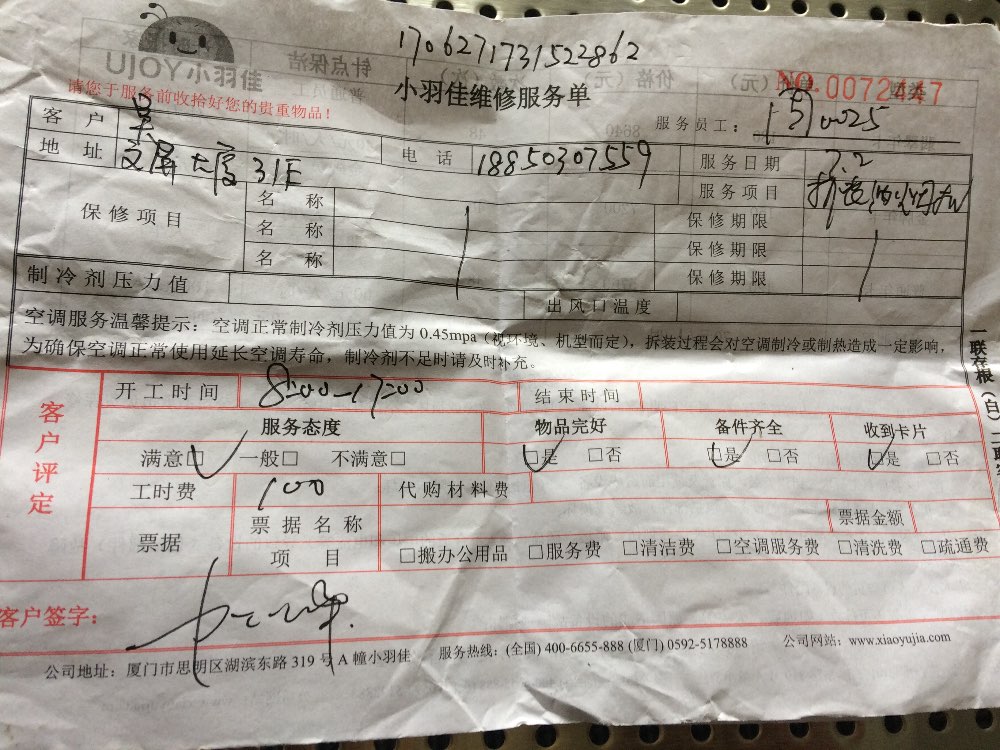 1706271731522862
UJOY小羽佳
小羽佳维修服务单
NO.0072447
请您于服务前收拾好您的贵重物品！
服务员工： 0025
客户 吴
地址 文屏大厦31E 电话 18850307559 服务日期 7.2
服务项目 拆装油烟机
保修项目 名称 保修期限
名称 保修期限
名称 保修期限
制冷剂压力值 出风口温度
空调服务温馨提示：空调正常制冷剂压力值为0.45mpa（视环境、机型而定），拆装过程会对空调制冷或制热造成一定影响，
为确保空调正常使用延长空调寿命，制冷剂不足时请及时补充。
一联存根（白）二联
客户评定
开工时间 8:00-17:00 结束时间
服务态度 物品完好 备件齐全 收到卡片
满意□ 一般□ 不满意□ □是 □否 □是 □否 □是 □否
工时费 100 代购材料费
票据 票据名称 票据金额
项目 □搬办公用品 □服务费 □清洁费 □空调服务费 □清洗费 □疏通费
客户签字：
公司地址：厦门市思明区湖滨东路319号A幢小羽佳 服务热线：(全国) 400-6655-888 (厦门) 0592-5178888 公司网站：www.xiaoyujia.com